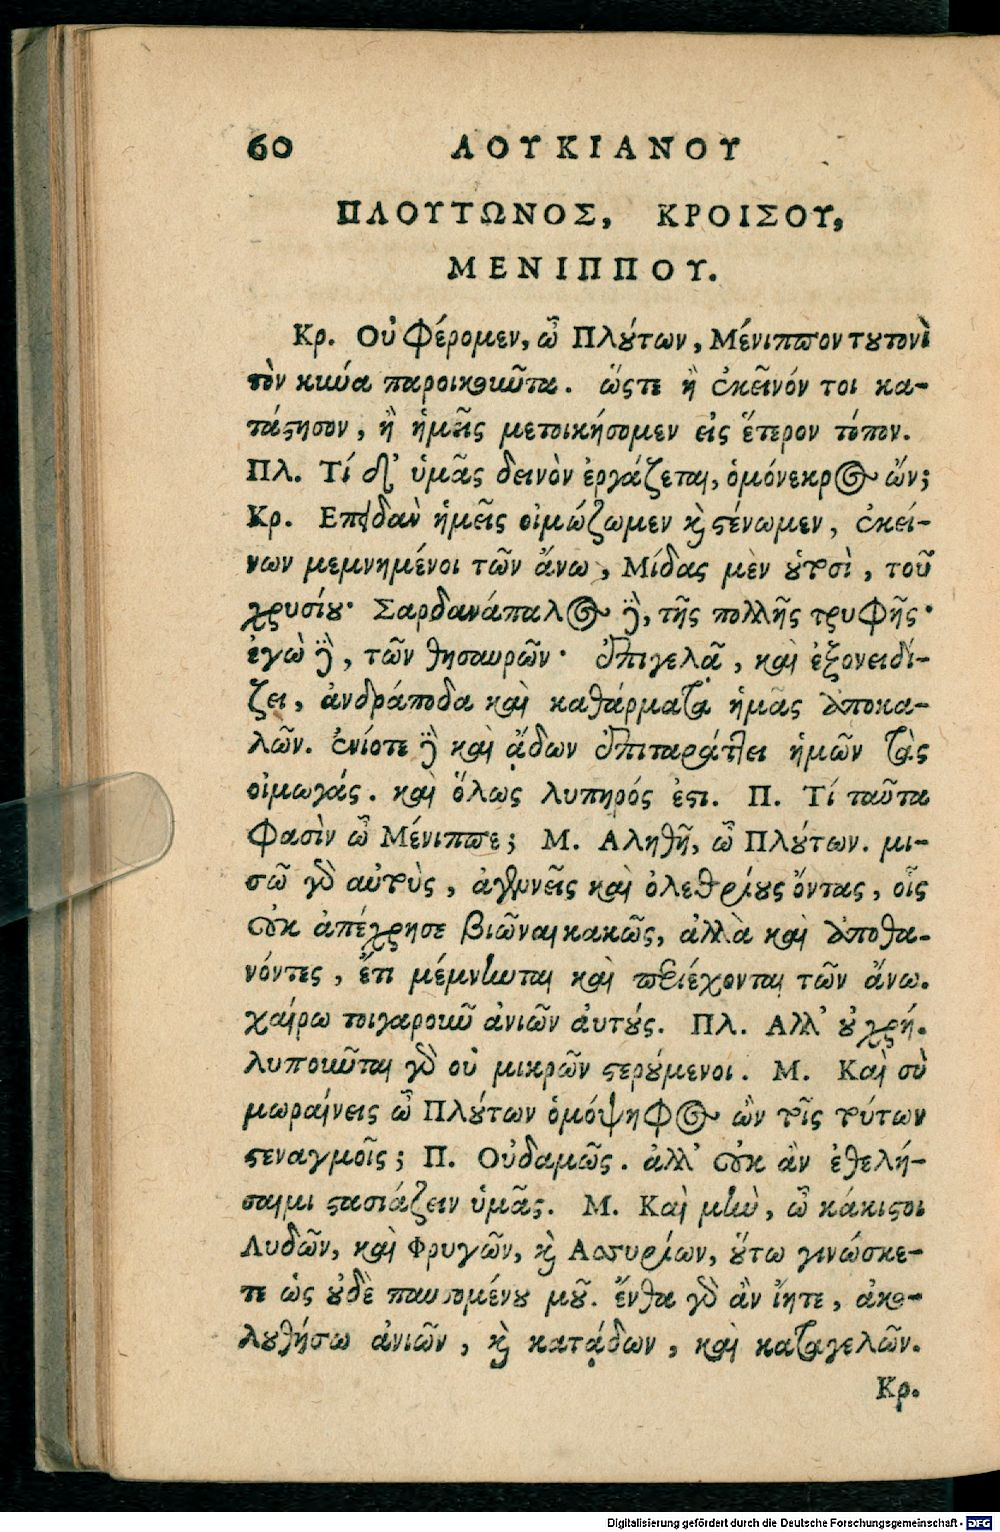 60 ΛΟΥΚΙΑΝΟΥ
ΠΛΟΥΤΩΝΟΣ, ΚΡΟΙΣΟΥ,
ΜΕΝΙΠΠΟΥ.
Κρ. Οὐ φέρομεν, ὦ Πλȣ́των, Μένιππον τȣτονὶ
τὸν κύνα παροικοῦντα. ὥςτε ἢ ἐκεῖνόν τοι κα-
τάϛησον, ἢ ἡμεῖς μετοικήσομεν εἰς ἕτερον τόπον.
Πλ. Τί δ' ὑμᾶς δεινὸν ἐργάζεται, ὁμόνεκρος ὤν;
Κρ. Επειδὰν ἡμεῖς οἰμώζωμεν ϗ ϛένωμεν, ἐκεί-
νων μεμνημένοι τῶν ἄνω, Μίδας μὲν ȣ̔τοσὶ, τοῦ
χρυσίȣ· Σαρδανάπαλος δὲ, τῆς πολλῆς τρυφῆς·
ἐγὼ δὲ, τῶν θησαυρῶν· ἐπιγελᾷ, καὶ ἐξονειδί-
ζει, ἀνδράποδα καὶ καθάρματα ἡμᾶς ἀποκα-
λῶν. ἐνίοτε δὲ καὶ ᾄδων ἐπιταράττει ἡμῶν τὰς
οἰμωγάς. καὶ ὅλως λυπηρός ἐϛι. Π. Τί ταῦτα
φασὶν ὦ Μένιππε; Μ. Αληθῆ, ὦ Πλȣ́των. μι-
σῶ γὰρ αὐτοὺς, ἀγεννεῖς καὶ ὀλεθρίȣς ὄντας, οἷς
οὐκ ἀπέχρησε βιῶναι κακῶς, ἀλλὰ καὶ ἀποθα-
νόντες, ἔτι μέμνηνται καὶ περιέχονται τῶν ἄνω.
χαίρω τοιγαροῦν ἀνιῶν ἀυτȣ́ς. Πλ. Αλλ' ȣ̓ χρή.
λυποῦνται γὰρ οὐ μικρῶν ϛερȣ́μενοι. Μ. Καὶ σὺ
μωραίνεις ὦ Πλȣ́των ὁμόψηφος ὢν τοῖς τȣ́των
ϛεναγμοῖς; Π. Οὐδαμῶς. ἀλλ' οὐκ ἂν ἐθελή-
σαιμι ϛασιάζειν ὑμᾶς. Μ. Καὶ μὴν, ὦ κάκιϛοι
Λυδῶν, καὶ Φρυγῶν, ϗ Ασσυρίων, ȣ̔́τω γινώσκε-
τε ὡς ȣ̓δὲ παυσομένȣ μȣ͂. ἔνθα γὰρ ἂν ἴητε, ἀκο-
λȣθήσω ἀνιῶν, ϗ κατᾴδων, καὶ καταγελῶν.
Κρ.
Digitalisierung gefördert durch die Deutsche Forschungsgemeinschaft - DFG